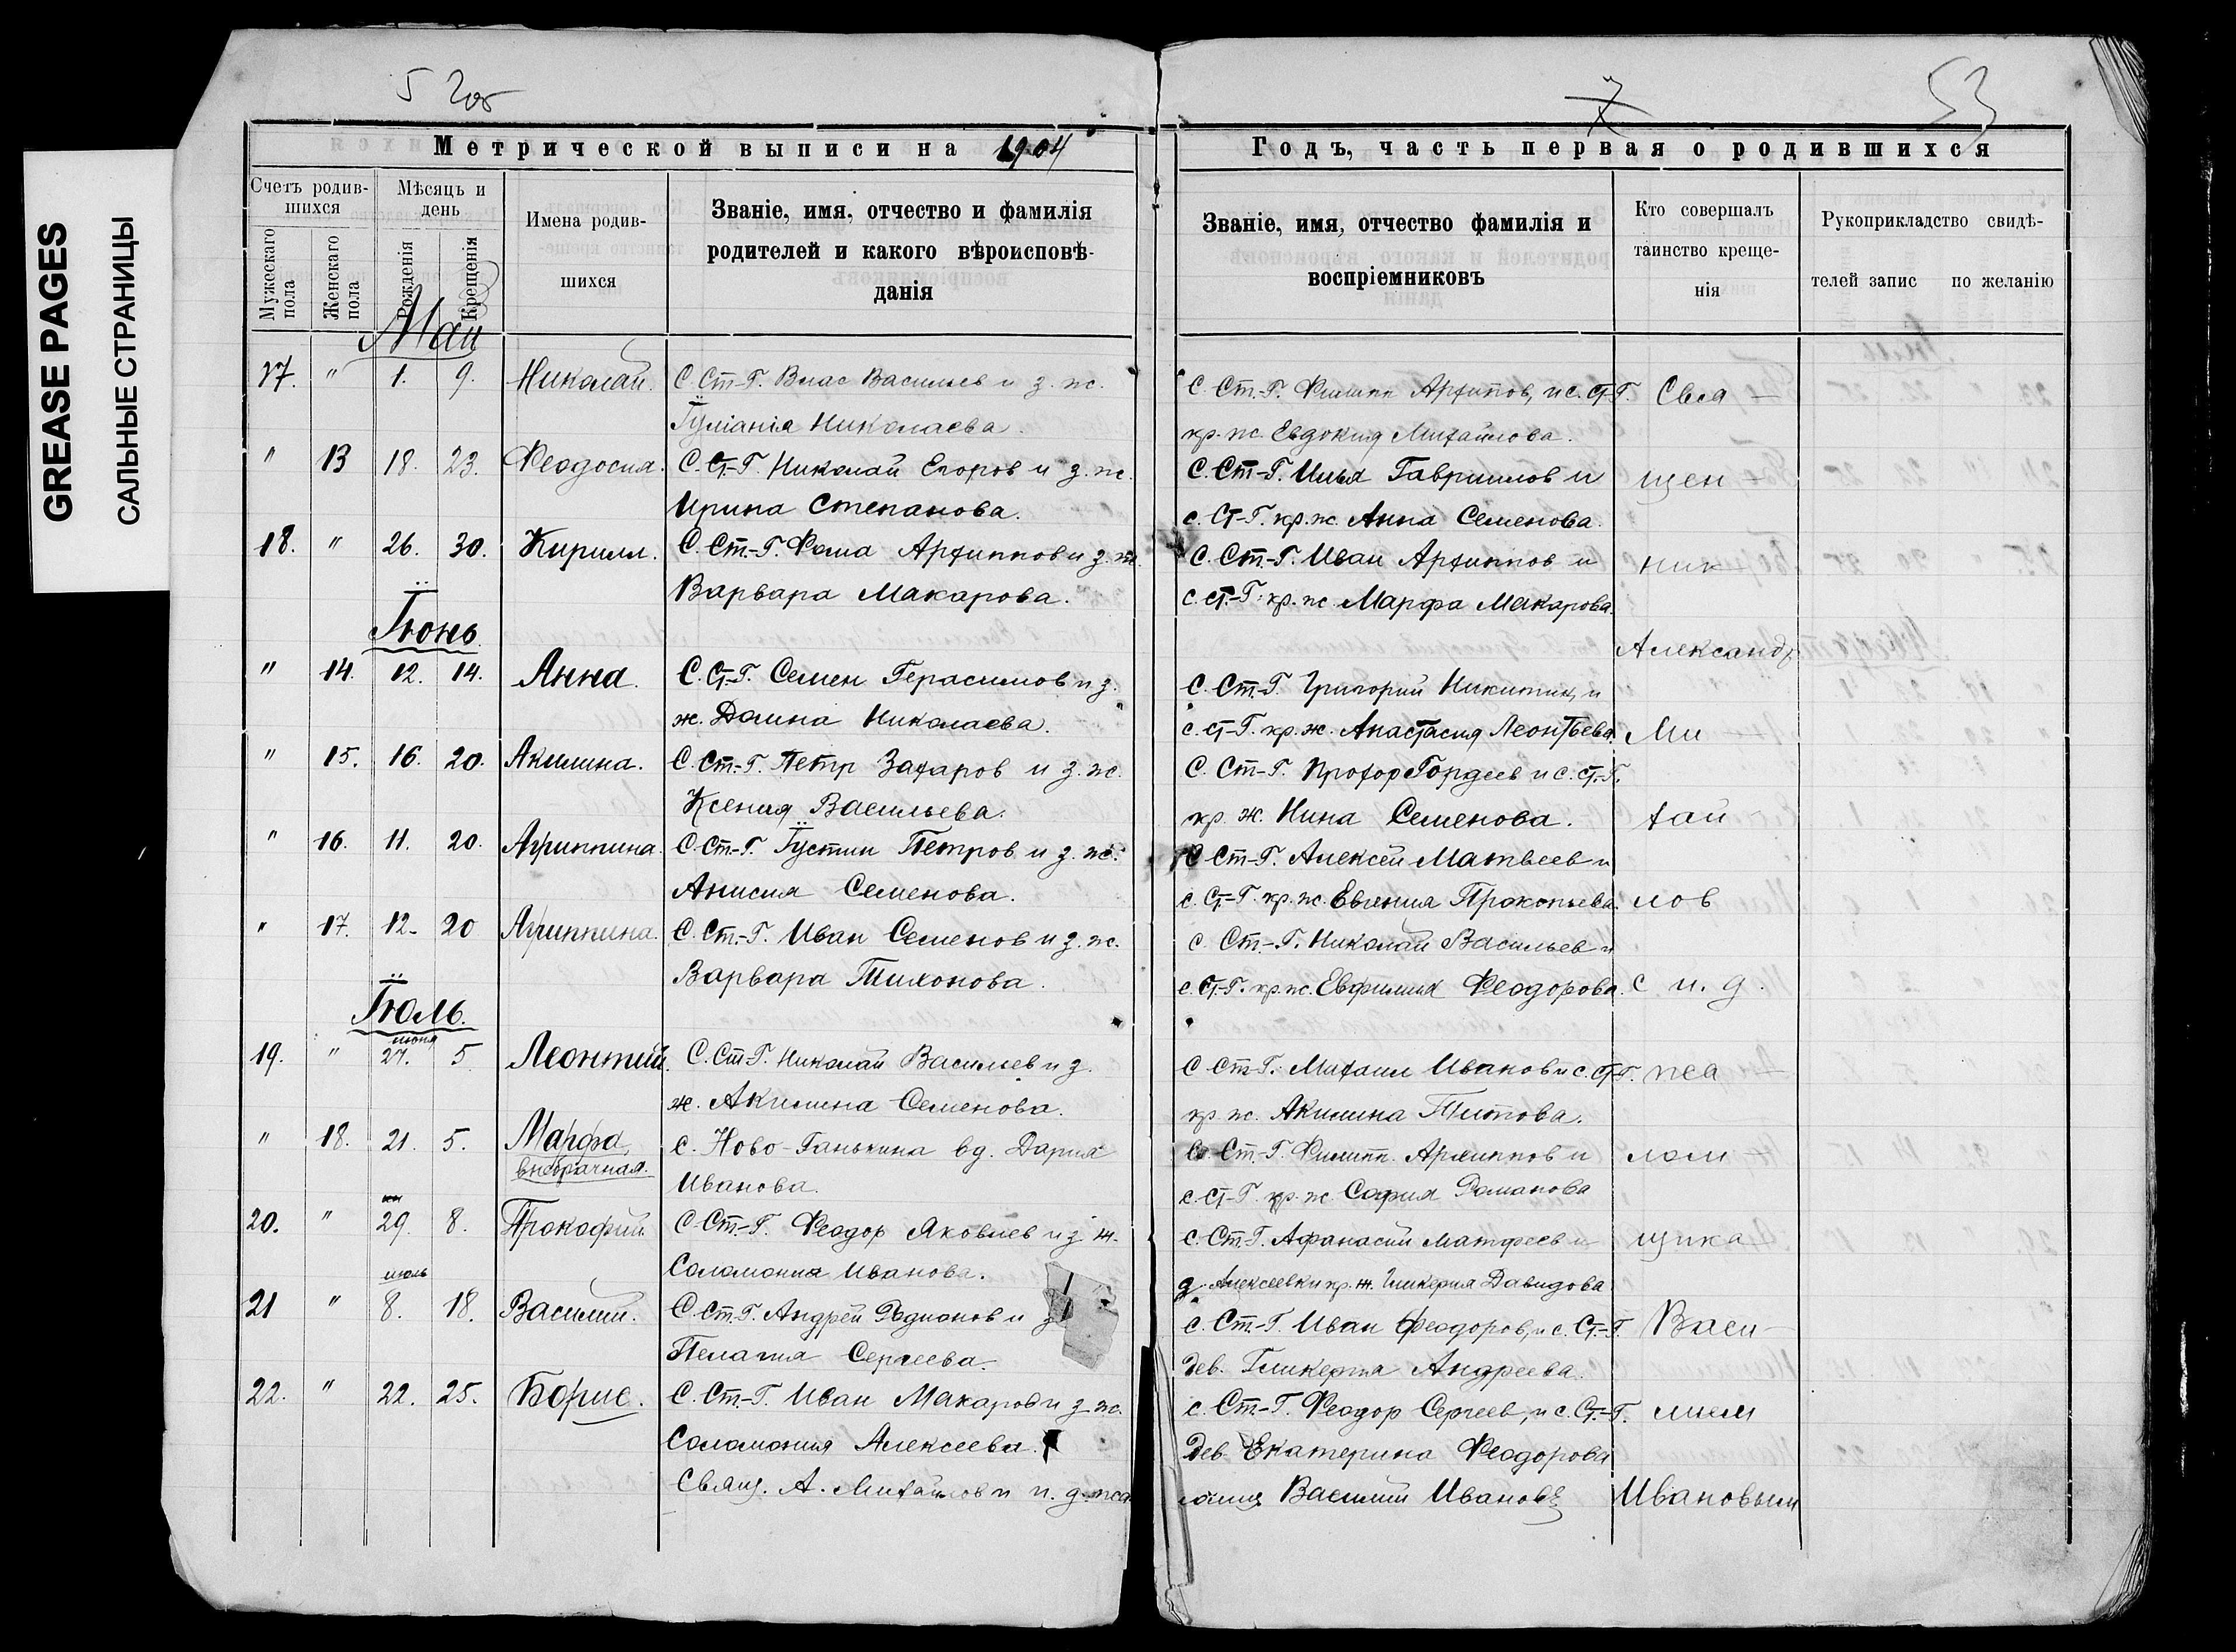 GREASE PAGES
САЛЬНЫЕ СТРАНИЦЫ
53
Метрической выписи на 1904
Счетъ родив-
шихся
Мужескаго пола
Женскаго пола
Мѣсяцъ и
день
Рожденія
Крещенія
Имена родив-
шихся
Званіе, имя, отчество и фамилія
родителей и какого вѣроисповѣ-
данія
Май
17. " 1. 9. Николай. С. Ст.-Г. Влас Васильев и з. ж.
Iуліанія Николаева.
" 13 18. 23. Феодосия. С. Ст.-Г. Николай Егоров и з. ж.
Ирина Степанова.
18. " 26. 30. Кирилл. С. Ст.-Г. Фома Архиппов и з. ж.
Варвара Макарова.
Iюнь
" 14. 12. 14. Анна. С. Ст.-Г. Семен Герасимов и з.
ж. Домна Николаева.
" 15. 16. 20. Акилина. С. Ст.-Г. Петр Захаров и з. ж.
Ксения Васильева.
" 16. 11. 20. Агриппина. С. Ст.-Г. Iустин Петров и з. ж.
Анисия Семенова.
" 17. 12. 20 Агриппина. С. Ст.-Г. Иван Семенов и з. ж.
Варвара Тихонова.
Iюль.
июня
19. " 27. 5 Леонтий. С. Ст-Г. Николай Васильев и з.
ж. Акилина Семенова.
" 18. 21. 5. Марфа, с. Ново-Ганькина вд. Дария
внебрачная. Иванова.
20. " 29. 8. Прокофий С Ст.-Г. Феодор Яковлев и з ж.
Соломония Иванова.
июль
21 " 8. 18. Василий. С. Ст.-Г. Андрей Родионов и з
Пелагия Сергеева.
22. " 22. 25. Борис. С. Ст.-Г. Иван Макаров и з ж.
Соломония Алексеева.
Свящ. А. Михайлов и и. д. пса
Годъ, часть первая о родившихся
Званіе, имя, отчество фамилія и
воспріемниковъ
Кто совершалъ
таинство креще-
нія
Рукоприкладство свидѣ-
телей запис по желанію
С. Ст.-Г. Филипп Архипов, и с. Ст-Г. Свя-
кр. ж. Евдокия Михайлова.
С. Ст-Г. Илья Гавриилов и щен-
с. Ст-Г. кр. ж. Анна Семенова.
С. Ст.-Г. Иван Архиппов и ник
с. Ст.-Г. кр. ж. Марфа Макарова.
Александр
С. Ст-Г. Григорий Никитин, и
с. Ст-Г. кр. ж. Анастасия Леонтьева. Ми-
С. Ст-Г. Прохор Гордеев и с. Ст.-Г.
кр. ж. Нина Семенова. хай-
С Ст-Г. Алексей Матвеев и
с. Ст-Г. кр. ж. Евгения Прокопьева. лов
с. Ст-.Г. Николай Васильев и
с. Ст-Г. кр. ж. Евфимия Феодорова. с и. д.
С Ст-Г. Михаил Иванов и с. Ст-Г. пса-
кр. ж. Акилина Титова.
С. Ст-Г. Филипп. Архиппов и лом-
с. Ст-Г. кр. ж София Романова
с. Ст-Г. Афанасий Матфеев и щика
д. Алексеевки кр. ж. Гликерия Давидова
с. Ст-Г. Иван Феодоров, и с. Ст-Г Васи-
дев. Гликерия Андреева.
с. Ст-Г. Феодор Сергеев, и с. Ст-Г. лием
дев Екатерина Феодорова
ломщ Василий Иванов Ивановым